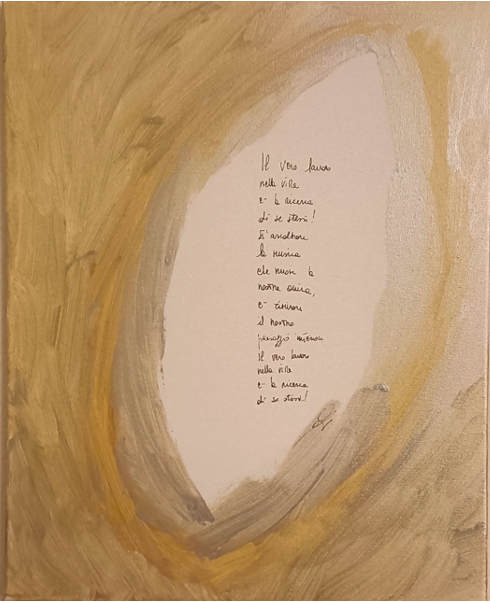 Il vero lavoro
nella vita
è la ricerca
di se stessi!
la musica
che muove la
nostra anima,
è
il nostro
paesaggio interiore
Il vero lavoro
nella vita
è la ricerca
di se stessi!